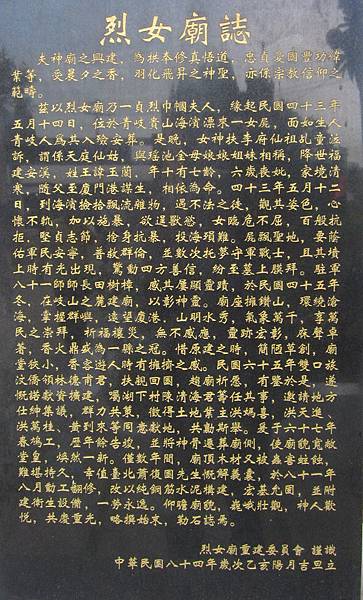 烈女廟誌
夫神廟之興建，為栱奉修真悟道，忠貞愛國豐功偉
業等，受晨夕之香，羽化飛昇之神聖，亦係宗教信仰之
範疇。
茲以烈女廟乃一貞烈巾幗夫人，緣起民國四十三年
五月十四日，位於青岐青山海濱漂來一女屍，面如生人
青岐人為其入殮安葬。是晚，女神扶李府仙祖乩童泣
訴，謂係天庭仙姑，與瑤池金母娘娘姐妹相稱，降世福
建安溪，姓王諱玉蘭，年十有七齡，六歲喪妣，家境清
寒，隨父至廈門港謀生，相依為命。四十三年五月十二
日，到海濱撿拾飄流雜物，遇不法之徒，觀其姿色，心
懷不軌，加以施暴，欲逞獸慾，女臨危不屈，百般抗
拒，堅貞志節，捨身抗暴，投海殞難。屍飄聖地，要蔭
佑軍民安寧，普救群倫，並數次托夢守軍戰士，且其墳
上時有光出現，驚動四方善信，紛至墓上膜拜。駐軍
八十一師師長田樹樟，感其屢顯靈蹟，於民國四十五年
冬，在岐山之麓建廟，以彰神靈。廟座擁鑽山，環繞滄
海，掌握群嶼，遠望廈港，山明水秀，氣象萬千，享萬
民之崇拜，祈福禳災，無不感應，靈跡宏彰，庥聲卓
著，香火鼎盛為一縣之冠。惜原建之時，簡陋草創，廟
堂狹小，香客遊人時有擁擠之感。民國六十五年雙口旅
汶僑領林德甫君，扶覲回國，趨廟祈恩，有鑒於是，遂
慨諾獻資擴建，囑湖下村陳清海君荷任其事，邀請地方
仕紳集議，群力共策，徵得土地業主洪媽喜、洪天進、
洪萬桂、黃到來等同意獻地，共勷斯舉。爰于六十七年
春鳩工，歷年餘告竣，並將神骨遷葬廟側，使廟貌寬敞
堂皇，煥然一新。僅數年間，廟頂木材又被蟲害蛀蝕，
難堪持久，幸值臺北蕭復國先生慨解義囊，於八十一年
八月動工翻修，改以純鋼筋水泥構建，宏基允固，並附
建衛生設備，一勞永逸。仰瞻廟貌，巍峨壯觀，神人歡
悅，共慶重光，略撰始末，勒石誌焉。
烈女廟重建委員會 謹識
中華民國八十四年歲次乙亥陽月吉旦立